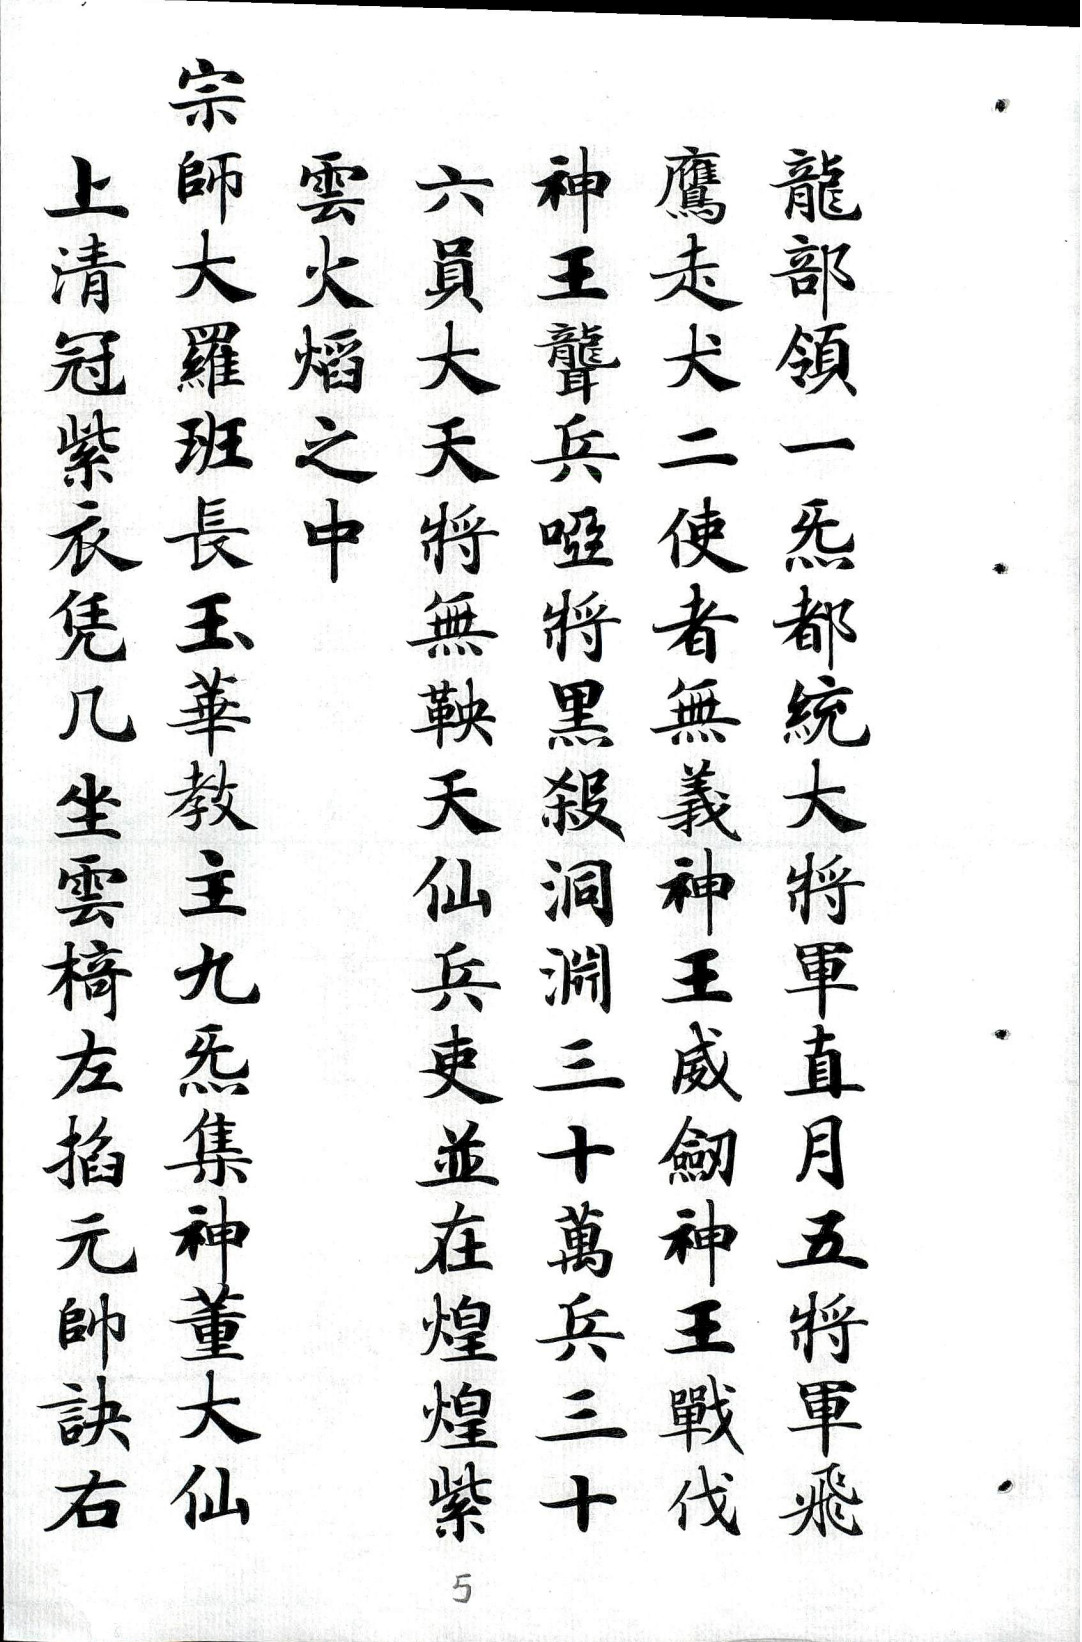 龍部領一炁都統大將軍直月五將軍飛
鷹走犬二使者無義神王威劒神王戰伐
神王聾兵啞將黑殺洞淵三十萬兵三十
六員大天將無鞅天仙兵吏並在煌煌紫
雲火熖之中
宗師大羅班長玉華教主九炁集神董大仙
上清冠紫衣凭几坐雲椅左掐元帥訣右
5